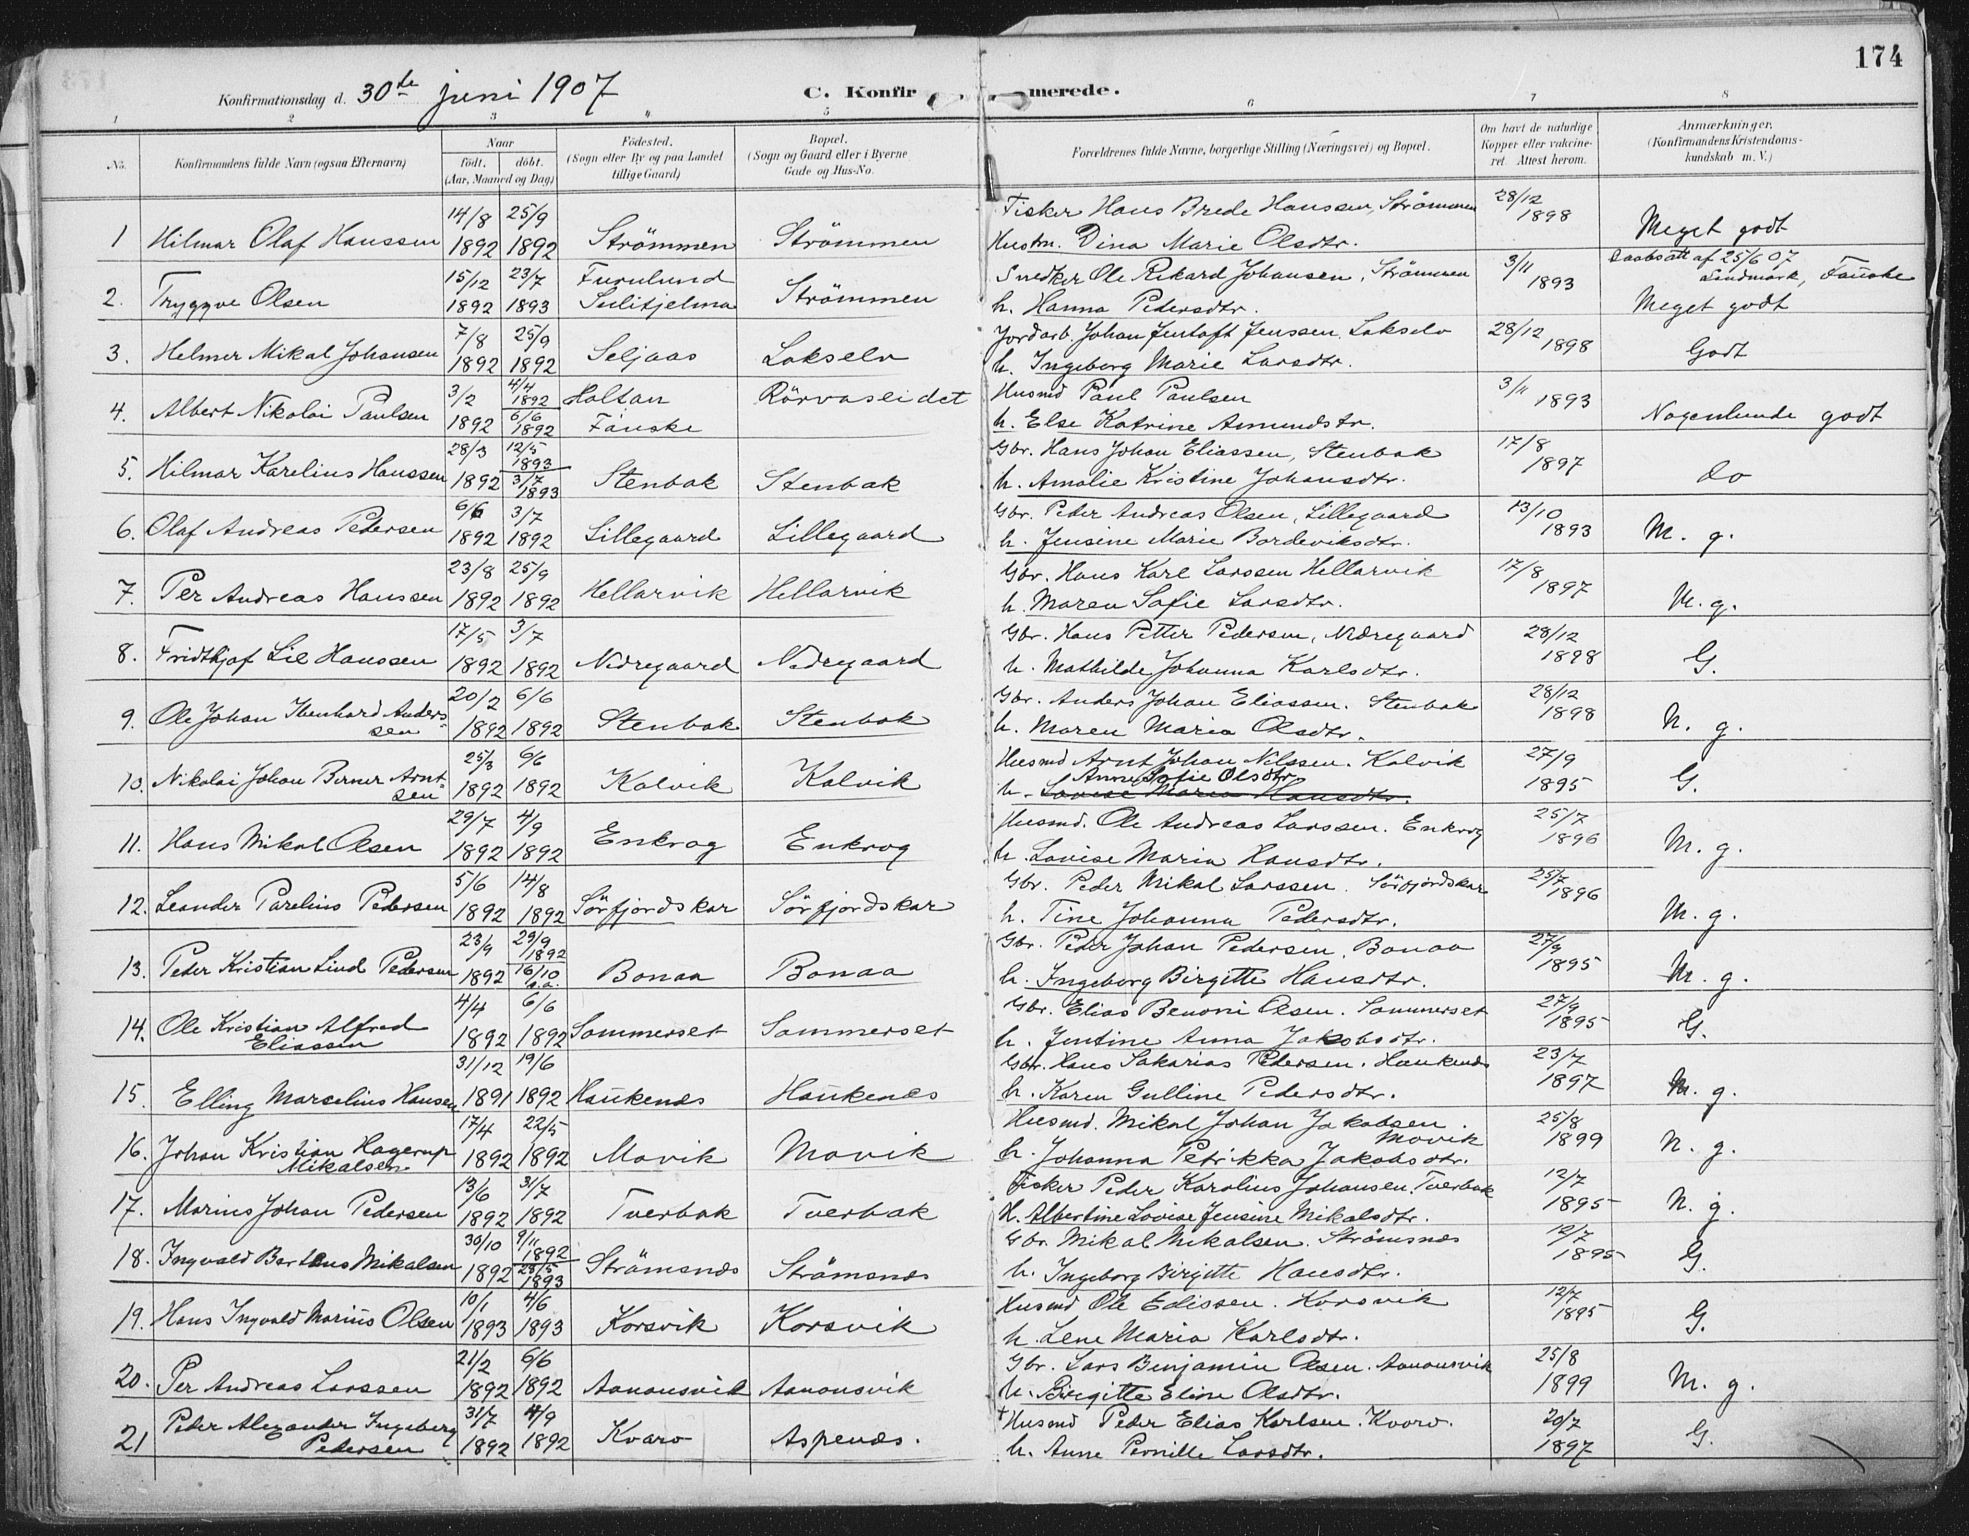 174
Konfirmationsdag d. 30te juni 1907 C. Konfir merede.
1 2 3 4 5 6 7 8
No. Konfirmandens fulde Navn (ogsaa Efternavn) Naar födt. döbt. (Aar, Maaned og Dag) Födested. (Sogn eller By og paa Landet tillige Gaard) Bopæl. (Sogn og Gaard eller i Byerne Gade og Hus-No. Forældrenes fulde Navne, borgerlige Stilling (Næringsvei) og Bopæl. Om havt de naturlige Kopper eller vakcineret. Attest herom. Anmærkninger. (Konfirmandens Kristendomskundskab m. V.)
14/8 25/9 Fisker Hans Brede Hanssen, Strömmen 28/12
1 Hilmar Olaf Hanssen 1892 1892 Strömmen Strömmen Hustru. Dina Marie Olsdtr. 1898 Meget godt
15/12 23/7 Furulund Snedker Ole Rikard Johansen, Strömmen 3/11 af 25/6 07 Sandmark, Fauske
2. Tryggve Olsen 1892 1893 Sulitjelma Strömmen h. Hanna Pedersdtr. 1893 Meget godt
7/8 25/9 Jordarb. Johan Jentoft Jenssen Lakselv 28/12
3. Helmer Mikal Johansen 1892 1892 Seljaas Lakselv h. Ingeborg Marie Larsdtr. 1898 Godt
3/2 4/4 1892 Holtan Rörvaseidet Husmd Paul Paulsen 3/11
4. Albert Nikolai Paulsen 1892 6/6 1892 Fauske h. Else Katrine Amundstr. 1893 Nogenlunde godt
28/3 12/5 1893 Gbr. Hans Johan Eliassen, Stenbak 17/8
5. Hilmar Karelius Hanssen 1892 3/7 1893 Stenbak Stenbak h. Amalie Kristine Johansdtr. 1897 do
6/6 3/7 Gbr. Peder Andreas Olsen, Lillegaard 13/10
6. Olaf Andreas Pedersen 1892 1892 Lillegaard Lillegaard h. Jensine Marie Bordeviksdtr. 1893 M. g.
23/8 25/9 Gbr. Hans Karl Larssen Hellarvik 17/8
7. Per Andreas Hanssen 1892 1892 Hellarvik Hellarvik h. Maren Sofie Larsdtr. 1897 M. g.
17/5 3/7 Gbr. Hans Petter Pedersen, Nedregaard 28/12
8. Fridthjof Lie Hanssen 1892 1892 Nedregaard Nedregaard h. Mathilde Johanna Karlsdtr. 1898 G.
20/2 6/6 Gbr. Anders Johan Eliassen. Stenbak 28/12
9. Ole Johan Ibenhard Anderssen 1892 1892 Stenbak Stenbak h. Maren Maria Olsdtr. 1898 N. g.
25/3 6/6 Husmd Arnt Johan Nilssen. Kalvik 27/9
10. Nikolai Johan Berner Arntsen 1892 1892 Kalvik Kalvik h. Anne Sofie Olsdtr. Lovise Maria Hansdtr. 1895 G.
29/7 4/9 Husmd. Ole Andreas Larssen. Enkrog 25/7
11. Hans Mikal Olsen 1892 1892 Enkrog Enkrog h. Lovise Maria Hansdtr. 1896 M. g.
5/6 14/8 Gbr. Peder Mikal Larssen. Sörfjordskar 25/7
12. Leander Parelius Pedersen 1892 1892 Sörfjordskar Sörfjordskar h. Tine Johanna Pedersdtr. 1896 M. g.
23/9 29/9 1892 Gbr. Peder Johan Pedersen. Bonaa 27/9
13. Peder Kristian Lind Pedersen 1892 16/10 s.a. Bonaa Bonaa h. Ingeborg Birgitte Hansdtr. 1895 M. g.
4/4 6/6 Gbr. Elias Benoni Olsen. Sommerset 27/9
14. Ole Kristian Alfred Eliassen 1892 1892 Sommerset Sommerset h. Jentine Anna Jakobsdtr. 1895 G.
31/12 19/6 Gbr. Hans Sakarias Pedersen. Haukenes 23/7
15. Elling Marselius Hansen 1891 1892 Haukenes Haukenes h. Karen Gulline Pedersdtr. 1897 M. g.
17/4 22/5 Husmd. Mikal Johan Jakobsen. Movik 25/8
16. Johan Kristian Hagerup Mikalsen 1892 1892 Movik Movik h. Johanna Petrikka Jakobsdtr. 1899 N. g.
13/6 31/7 Fisker Peder Karolius Johansen. Tverbak 12/7
17. Marius Johan Pedersen 1892 1892 Tverbak Tverbak H. Albertine Lovise Jensine Mikalsdtr. 1895 N. g.
30/10 9/11 1892 Gbr. Mikal Mikalsen. Strömsnes 12/7
18. Ingvald Barteus Mikalsen 1892 25/5 1893 Strömsnes Strömsnes h. Ingeborg Birgitte Hansdtr. 1895 G.
10/1 4/6 Husmd Ole Edissen. Korsvik 12/7
19. Hans Ingvald Marius Olsen 1893 1893 Korsvik Korsvik h. Lene Maria Karlsdtr. 1895 G.
21/2 6/6 Gbr. Lars Benjamin Olsen. Aanonsvik 25/8
20. Per Andreas Larssen 1892 1892 Aanonsvik Aanonsvik h. Birgitte Eline Olsdtr. 1899 M. g.
31/7 4/9 + Husmd Peder Elias Karlsen. Kvarv. 20/7
21 Peder Alexander Ingeberg Pedersen 1892 1892 Kvarv Aspenes. h. Anne Pernille Larsdtr. 1897 G.